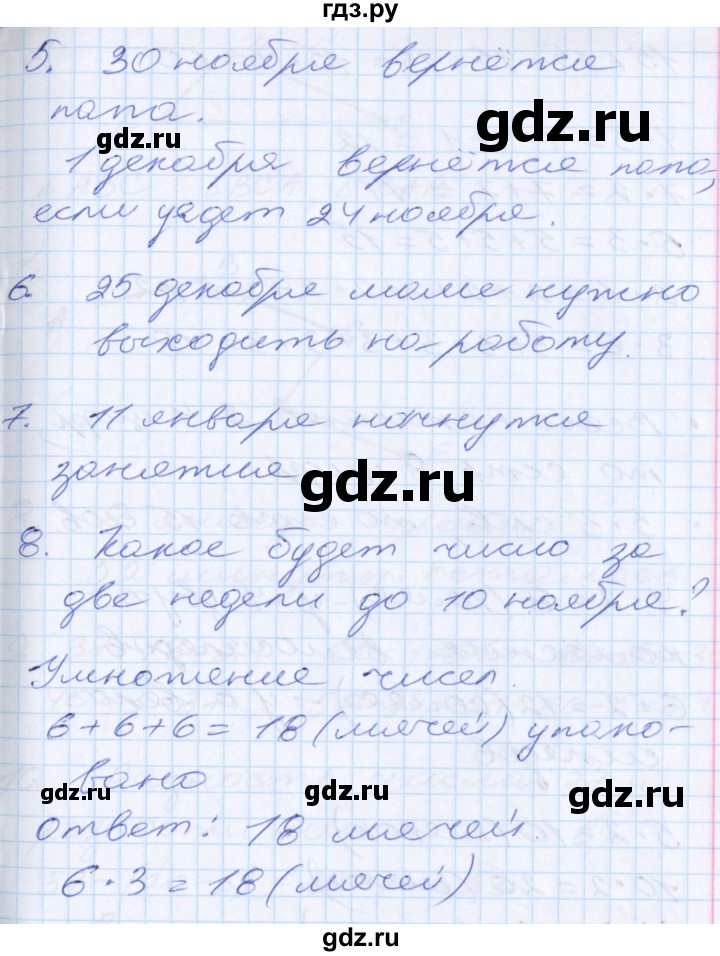 гдз.ру
5. 30 ноября вернётся
папа.
gdz.ru
gdz.ru
1 декабря вернётся папа,
если уедет 24 ноября.
6. 25 декабря маме нужно
выходить на работу.
7. 11 января начнутся
занятия
gdz.ru
8. Какое будет число за
две недели до 10 ноября?
Умножение чисел.
6+6+6=18 (мячей) упако-
вано
gdz.ru
gdz.ru
gdz.ru
Ответ: 18 мячей.
6·3=18 (мячей)
gdz.ru